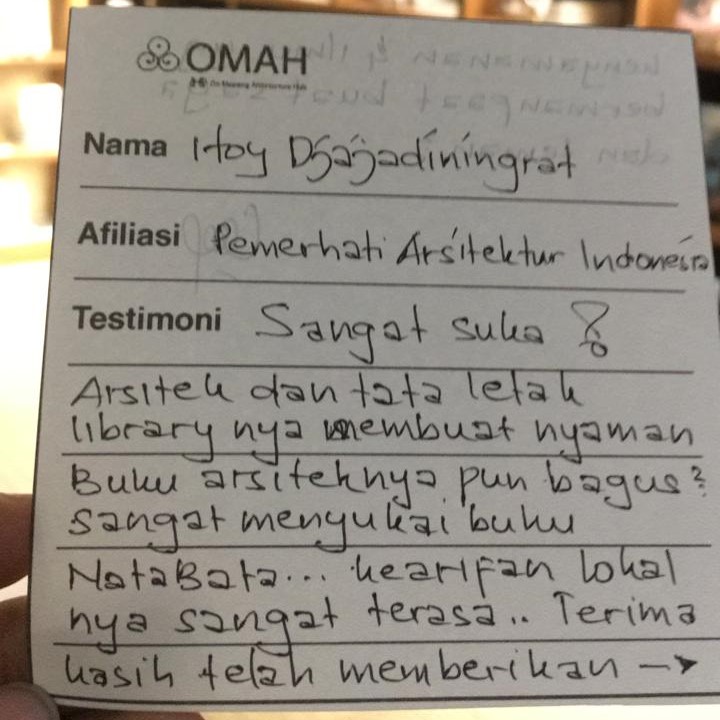 OMAH
Nama Hoy Djajadiningrat
Afiliasi Pemerhati Arsitektur Indonesia
Testimoni Sangat suka
Arsitek dan tata letak
library nya membuat nyaman
Buku arsiteknya pun bagus²
sangat menyukai buku
NataBata... kearifan lokal
nya sangat terasa.. Terima
kasih telah memberikan →